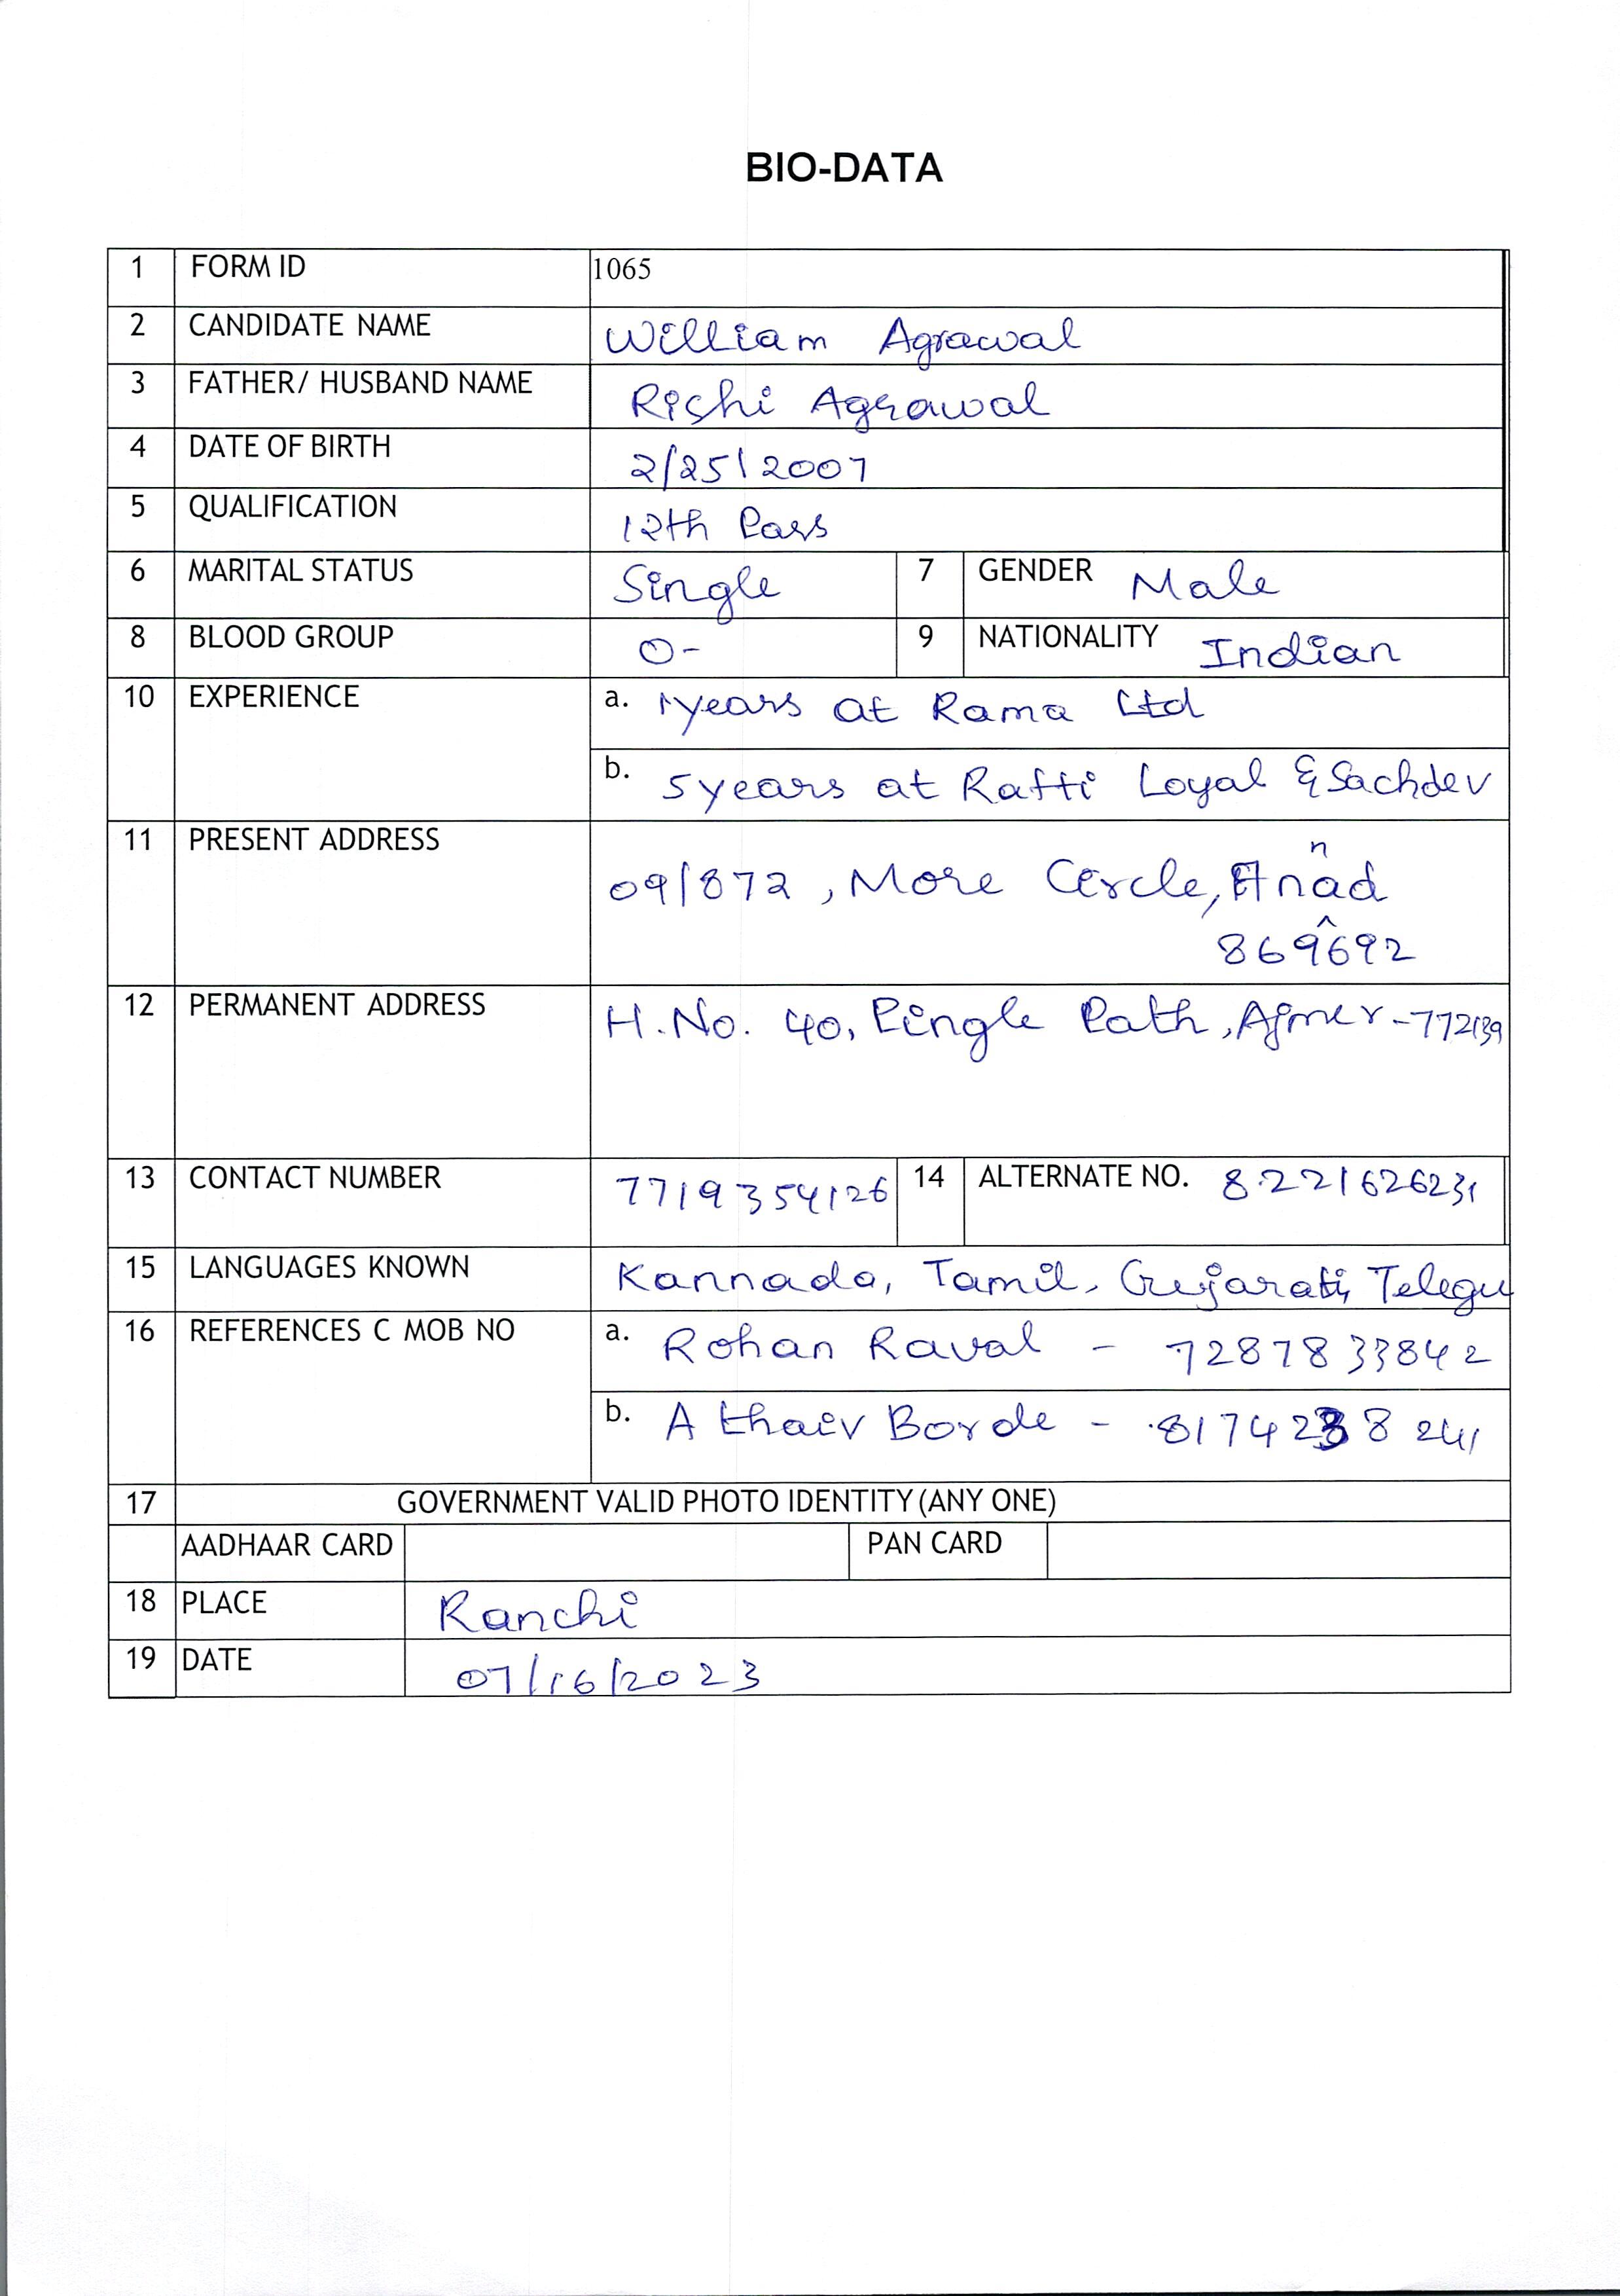 BIO-DATA
1 FORM ID 1065
2 CANDIDATE NAME William Agrawal
3 FATHER/ HUSBAND NAME Rishi Agrawal
4 DATE OF BIRTH 2/25/2007
5 QUALIFICATION 12th Pass
6 MARITAL STATUS Single 7 GENDER Male
8 BLOOD GROUP O- 9 NATIONALITY Indian
10 EXPERIENCE a. 1years at Rama Ltd
b. 5years at Ratti Loyal & Sachdev
11 PRESENT ADDRESS 09/872, More Circle,
869692
12 PERMANENT ADDRESS H.No. 40, Pingle Path, Ajmer-772139
13 CONTACT NUMBER 7719354126 14 ALTERNATE NO. 8221626231
15 LANGUAGES KNOWN Kannada, Tamil, Gujarati, Telegu
16 REFERENCES C MOB NO a. Rohan Raval - 7287833842
b. Athaiv Borde - 8174238241
17 GOVERNMENT VALID PHOTO IDENTITY (ANY ONE)
AADHAAR CARD PAN CARD
18 PLACE Ranchi
19 DATE 07/16/2023